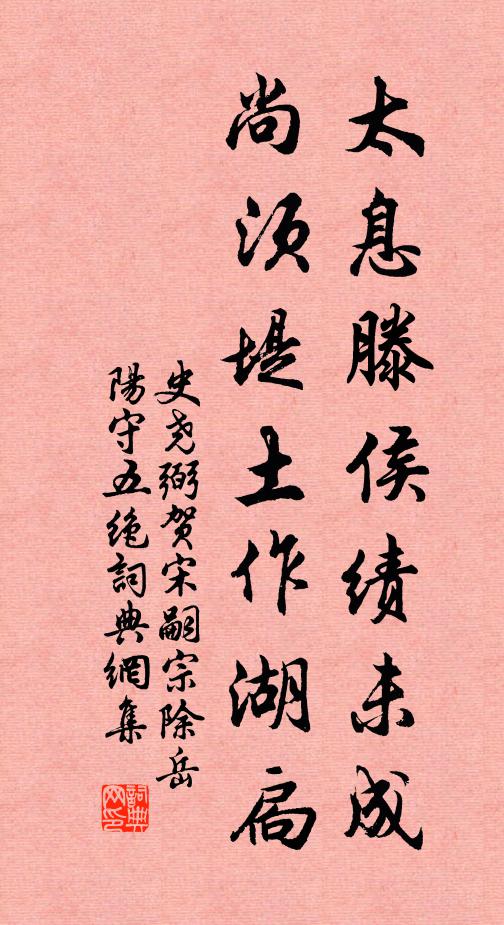 太息滕侯绩未成
尚须堤土作湖扃
史尧弼贺宋嗣宗除岳
陽守五绝詞典網集
詞典網印